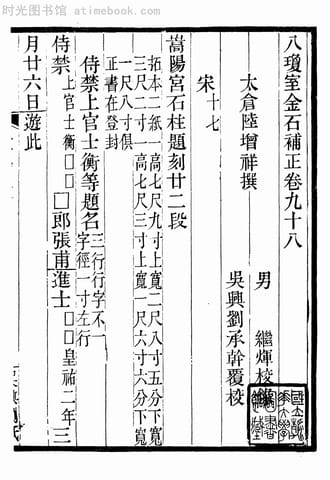 时光图书馆 atimebook.com
八瓊室金石補正卷九十八
太倉陸增祥撰 男 繼煇校錄
吳興劉承幹覆校
宋十七
嵩陽宮石柱題刻廿二段
拓本二紙一高七尺九寸上寬二尺八寸五分下寬
三尺二寸一高七尺三寸上寬一尺六寸六分下寬
一尺八寸俱
正書在登封
侍禁上官士衡等題名
三行行字不一
字徑一寸左行
侍禁上官士衡□□□郎張甫進士□□皇祐二年三
月廿六日遊此